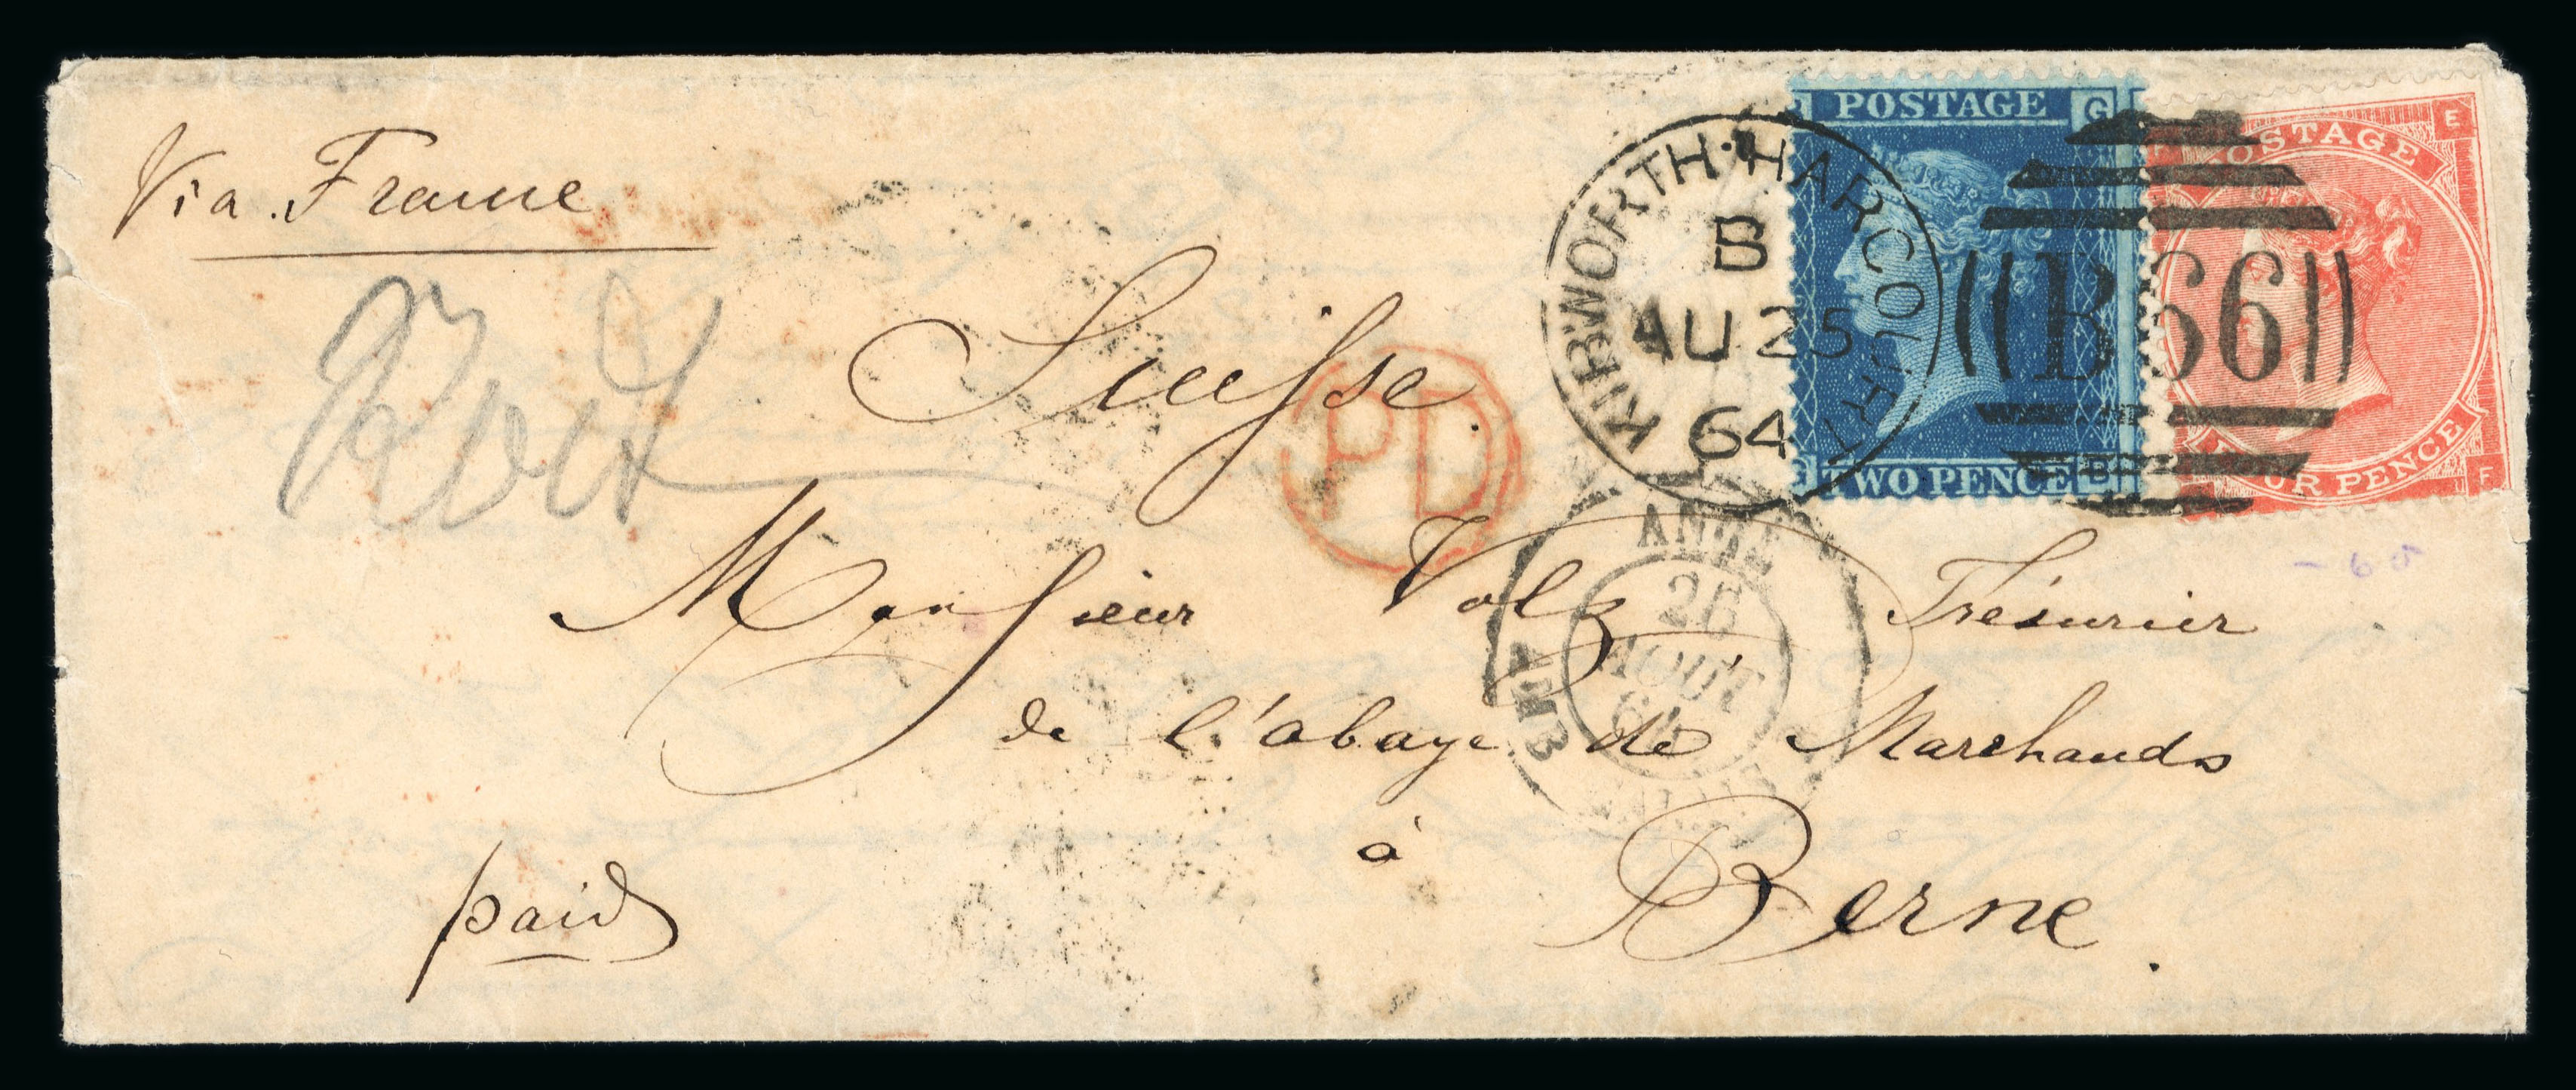 Via France
Suisse
Monsieur Volz Trésurier
de l'abaye de Marchands
à
Berne.
paid
PD
KIBWORTH·HARCOURT
B
AU 25
64
B66
POSTAGE
G
G B
TWO PENCE
POSTAGE
E
F
FOUR PENCE
ANGL
26
AOUT
64